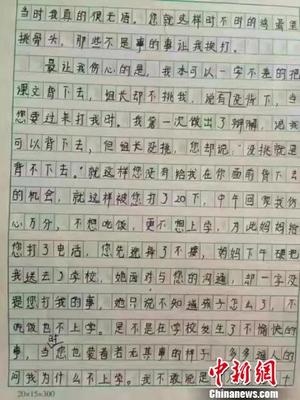 当时我真的很无语。您就这样时不时的鸡蛋里
挑骨头，那些不是事的事让我挨打。
最让我伤心的是，我本可以一字不差的把
课文背下去，组长却不挑我，说有没背下，当
您要过来打我时。我第一次做出了辩解，说我
可以背下去，但组长没挑，您却说“没挑就是
背不下去。”就这样您没有给我在你面前背下去
的机会，就这样被您打了20下，中午回家我伤
心万分，不想吃饭，更不想上学，为此妈妈给
您打了电话，您先说等了不接，妈妈下午硬把
我送去了学校，她面对与您的沟通，却一字没
提您打我的事，她只说不知道孩子怎么了，不
吃饭也不上学。是不是在学校发生了不愉快的
事，当时您也装着若无其事的样子，多多逼人的
问我为什么不上学。我不敢说是
20×15=300
中新网